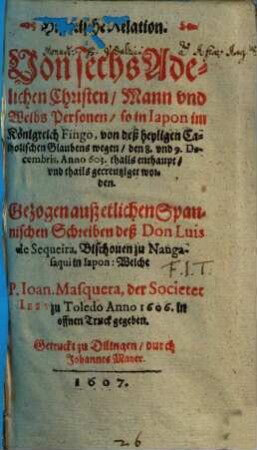 Relation.
Von sechs Ade-
lichen Christen/ Mann vnd
Weibs Personen/ so in Iapon im
Königreich Fingo, von deß heyligen Ca-
tholischen Glaubens wegen/ den 8. vnd 9. De-
cembris, Anno 603. thails enthaupt/
vnd thails gecreutziget wor-
den.
Gezogen auß etlichen Span-
nischen Schreiben deß Don Luis
de Sequeira, Bischouen zu Nanga-
saqui in Iapon: Welche
F. I. T.
P. Ioan. Masquera, der Societet
IESV zu Toledo Anno 1606. in
offnen Truck gegeben.
Getruckt zu Dilingen/ durch
Johannes Mayer.
1607.
26